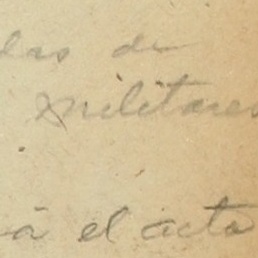 das de
militares
á el acta